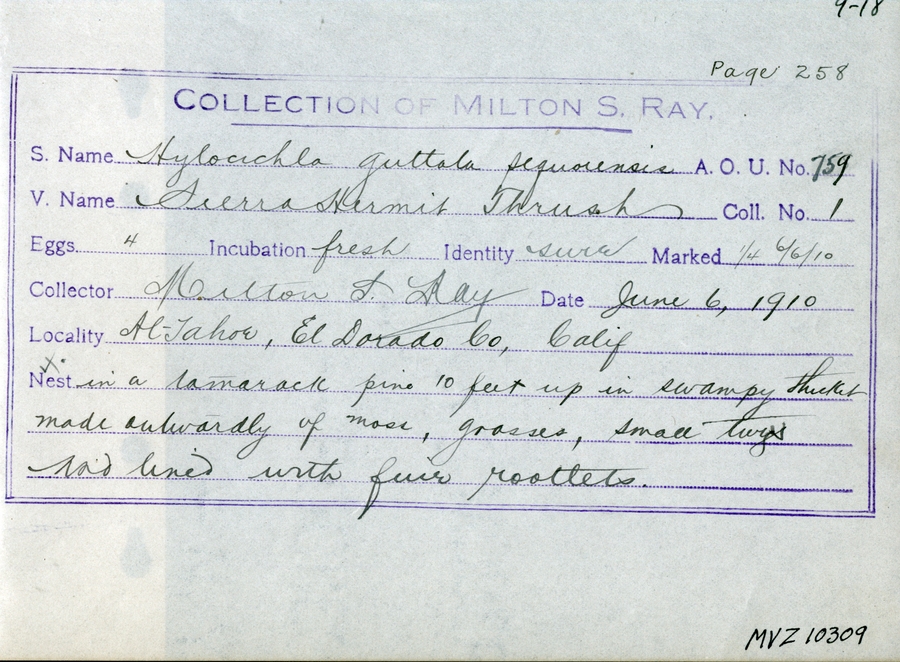 9-18
Page 258
COLLECTION OF MILTON S. RAY.
S. Name Hylocichla guttata sequoiensis A. O. U. No. 759
V. Name Sierra Hermit Thrush Coll. No. 1
Eggs 4 Incubation fresh Identity sure Marked 1/4 6/6/10
Collector Milton S. Ray Date June 6, 1910
Locality Al-Tahoe, El Dorado Co, Calif
Nest in a tamarack pine 10 feet up in swampy thicket
made outwardly of moss, grasses, small twigs
and lined with fine rootlets.
MVZ 10309